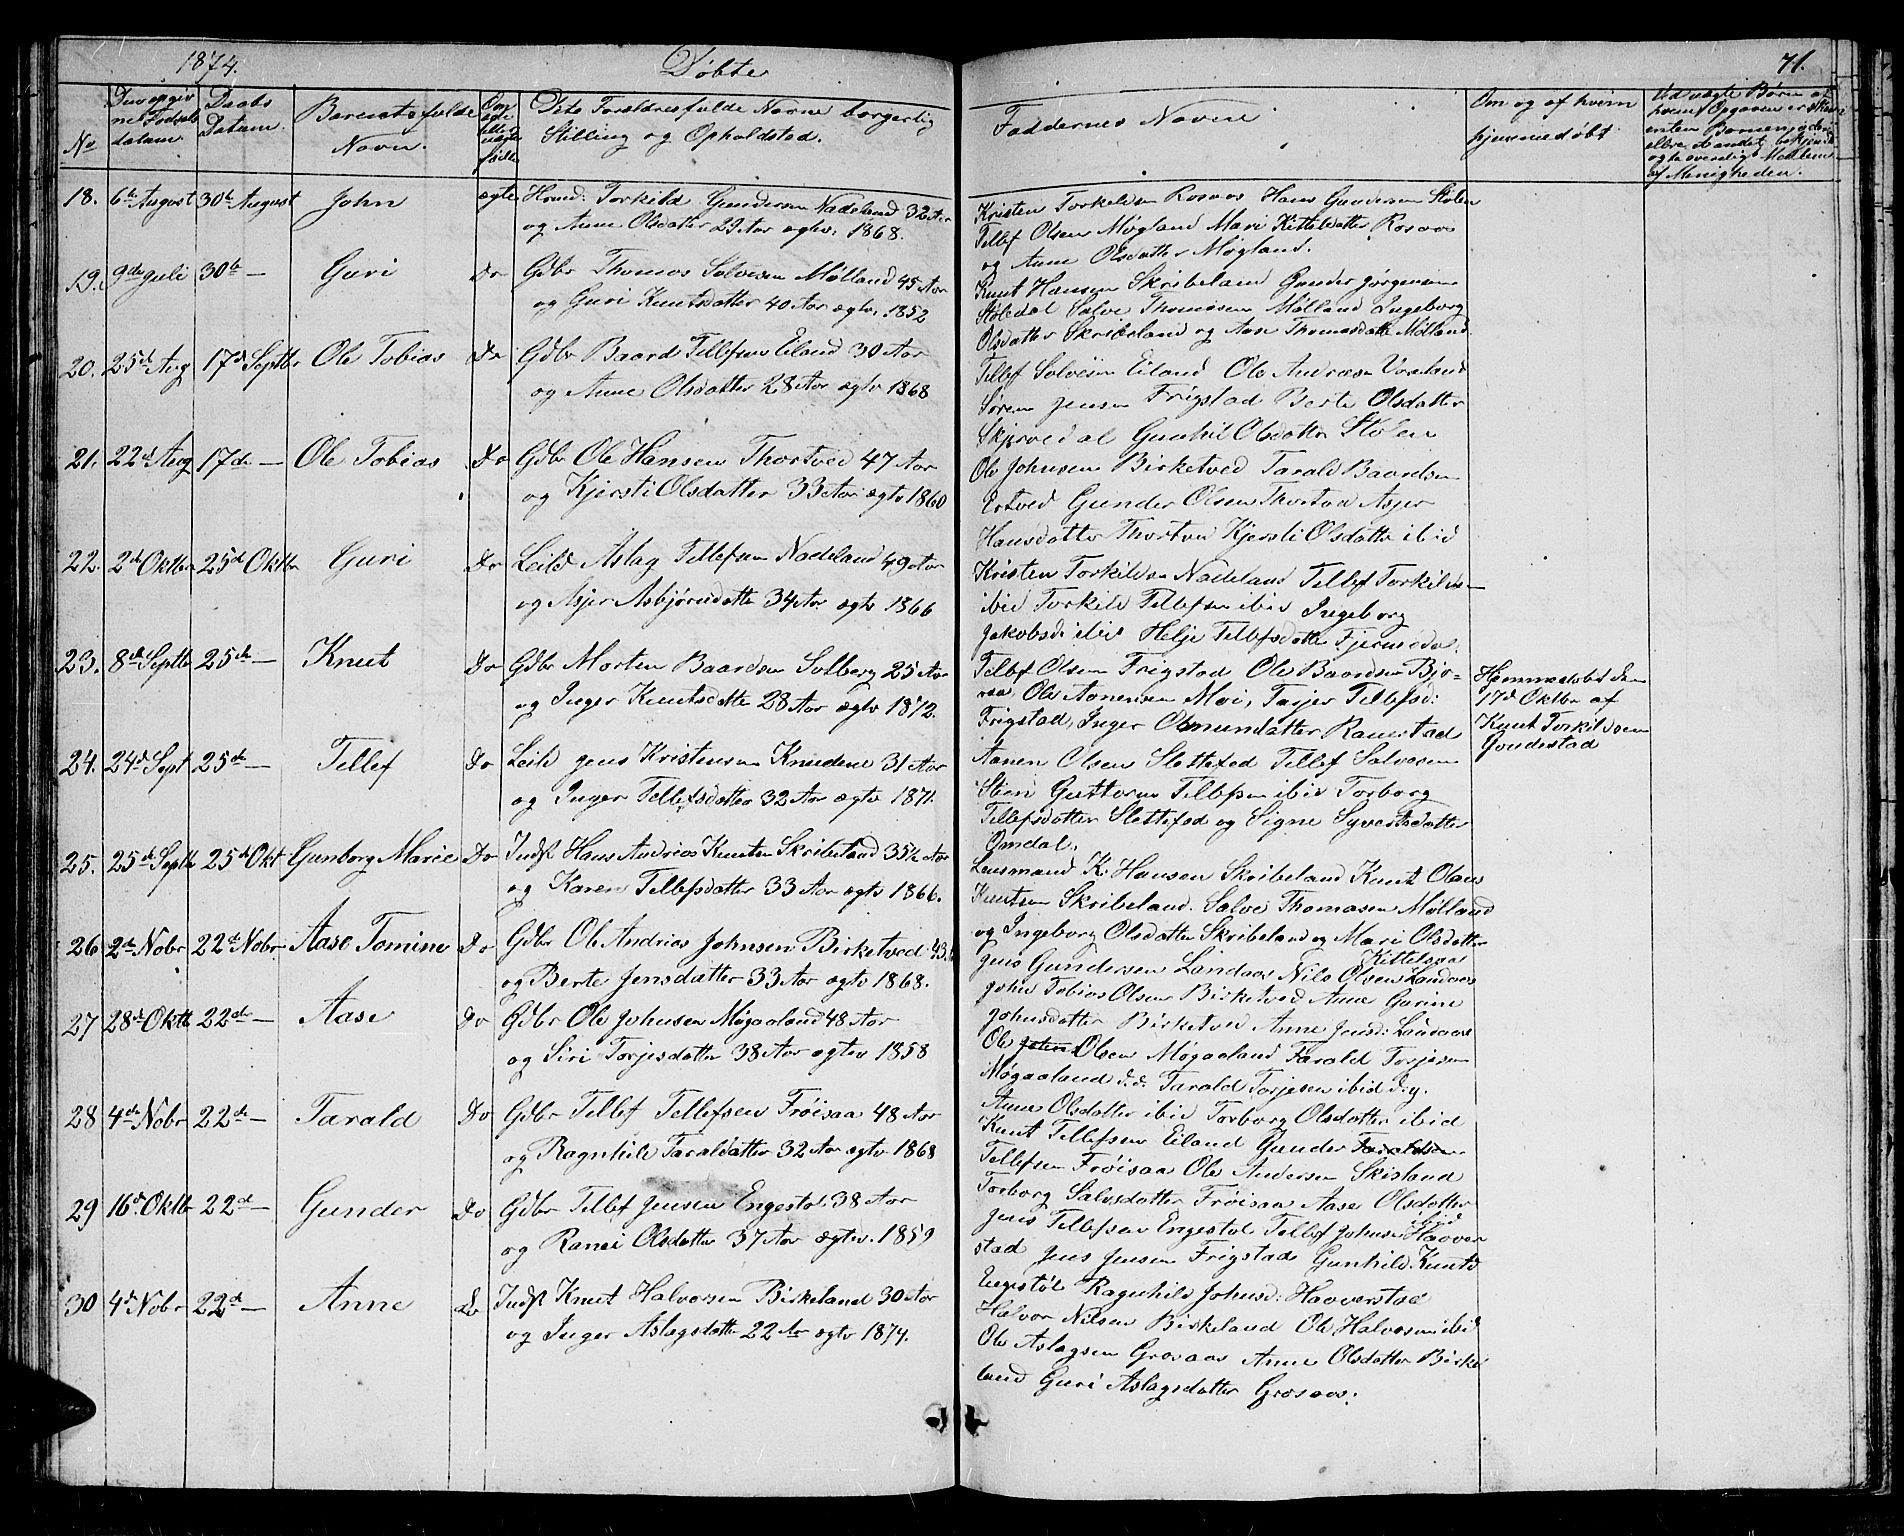 1874.
Døbte
71.
No
Den opgivne Fødselsdatum
Daabs Datum.
Barnets fulde Navn.
Om ægte eller uægte født
Dets Forældres fulde Navne borgerlig Stilling og Opholdsted.
Faddernes Navne
Om og af hvem hjemmedøbt
Ved uægte Børn af hvem Opgaven er skeet enten Barnemoderen eller andet bekjendt og troværdigt Medlem af Menigheden.
18. 6te August 30te August John ægte Huusmd: Torkild Gundersen Nadeland 32 Aar
og Anne Olsdatter 29 Aar ægtev. 1868.
Kristen Torkildsen Rosaas Hans Gundersen Stølen
Tellef Olsen Møgland Mari Kittelsdatter Rosaas
og Anne Olsdatter Møgland.
19. 9de Juli 30te — Guri Do Gdbr Thomas Salvesen Mølland 45 Aar
og Guri Knutsdatter 40 Aar ægtv. 1852
Knut Hansen Skribeland Gunder Jørgensen
Støledal Salve Thomassen Mølland Ingeborg
Olsdatter Skribeland og Aase Thomasdatter Mølland.
20. 25de Aug 17de Septbr Ole Tobias Do Gdbr Baard Tellefsen Eiland 30 Aar
og Anne Olsdatter 28 Aar ægtv 1868
Tellef Salvesen Eiland Ole Andræsen Vraaland
Søren Jensen Frigstad Berte Olsdatter
Skjervedal Gunhil Olsdatter Stølen
21. 22de Aug 17de — Ole Tobias Do Gdbr Ole Hansen Thortved 47 Aar
og Kjersti Olsdatter 33 Aar ægtv 1860
Ole Johnsen Birketved Tarald Baardsen
Ertved Gunder Olsen Thortved Asjer
Hansdatter Thortved Kjersti Olsdatter ibid
22. 2de Oktbr 25de Oktbr Guri Do Leild Aslag Tellefsen Nadeland 49 Aar
og Asjer Asbjørnsdatter 34 Aar ægtv 1866
Kristen Torkildsen Nadeland Tellef Torkildsen
ibid Torkild Tellefsen ibid Ingeborg
Jakobsd: ibid Helje Tellefsdatter Fjermedal.
23. 8de Septbr 25de — Knut Do Gdbr Morten Baardsen Solberg 25 Aar
og Inger Knutsdatter 28 Aar ægtv 1872.
Tellef Olsen Frigstad Ole Baardsen Bjoraa
Ole Aanensen Moi, Tasjer Tellefsd:
Frigstad, Inger Osmundatter Raenstad
Hjemmedøbt den
17de Oktbr af
Knut Torkildsen
Gondestad
24. 24de Sept 25de — Tellef Do Leild Jens Kristensen Knudene 31 Aar
og Inger Tellefsdatter 32 Aar ægtv 1871.
Aanen Olsen Slettefed Tellef Salvesen
Stien Guttorm Tellefsen ibid Torborg
Tellefsdatter Slettefed og Signe Syvertsdatter
Omdal.
25. 25de Septbr 25de Okt Gunborg Marie Do Indst Hans Andreas Knutsen Skribeland 35½ Aar
og Karen Tellefsdatter 33 Aar ægtv 1866.
Lensmand K. Hansen Skribeland Knut Olaus
Knutsen Skribeland. Salve Thomasen Mølland
og Ingeborg Olsdatter Skribeland og Mari Olsdatter
Kittelsaa
26 2de Nobr 22de Nobr Aase Tomine Do Gdbr Ole Andreas Johnsen Birketved 43
og Berte Jensdatter 33 Aar ægtv 1868.
Jens Gundersen Landaas Nils Olsen Landaas
John Tobias Olsen Birketved Anne Gurine
Johnsdatter Birketved Anne Jensd: Landaas
27 28de Oktb 22de — Aase Do Gdbr Ole Johnsen Møgaaland 48 Aar
og Siri Torjesdatter 38 Aar ægtev 1858
Ole John Olsen Møgaaland Tarald Torjesen
Møgaaland d.æ. Tarald Torjesen ibid d.y.
Anne Olsdatter ibid Torborg Olsdatter ibid
28 4de Nobr 22de — Tarald Do Gdbr Tellef Tellefsen Frøisaa 48 Aar
og Ragnhild Taraldatter 32 Aar ægtv 1868
Knut Tellefsen Eiland Gunder Taraldsen
Tellefsen Frøisaa Ole Andersen Skisland
Torborg Salvsdatter Frøisaa Aase Olsdatter
ibid
29 16de Oktbr 22de — Gunder Do Gdbr Tellef Jensen Engestøl 38 Aar
og Ranei Olsdatter 37 Aar ægtv. 1859
Jens Tellefsen Engestøl Tellef Johnsen Haaver
stad Jens Jensen Frigstad Gunhild Knutsd
Engestøl Ragnhild Johnsd: Haaverstad
30 4de Nobr 22de — Anne Do Indst Knut Halvorsen Birkeland 30 Aar
og Inger Aslagsdatter 22 Aar ægtv 1874.
Halvor Nilsen Birkeland Ole Halvorsen ibid
Ole Aslagsen Grosaas Anne Olsdatter Birke
land Guri Aslagsdatter Grosaas.